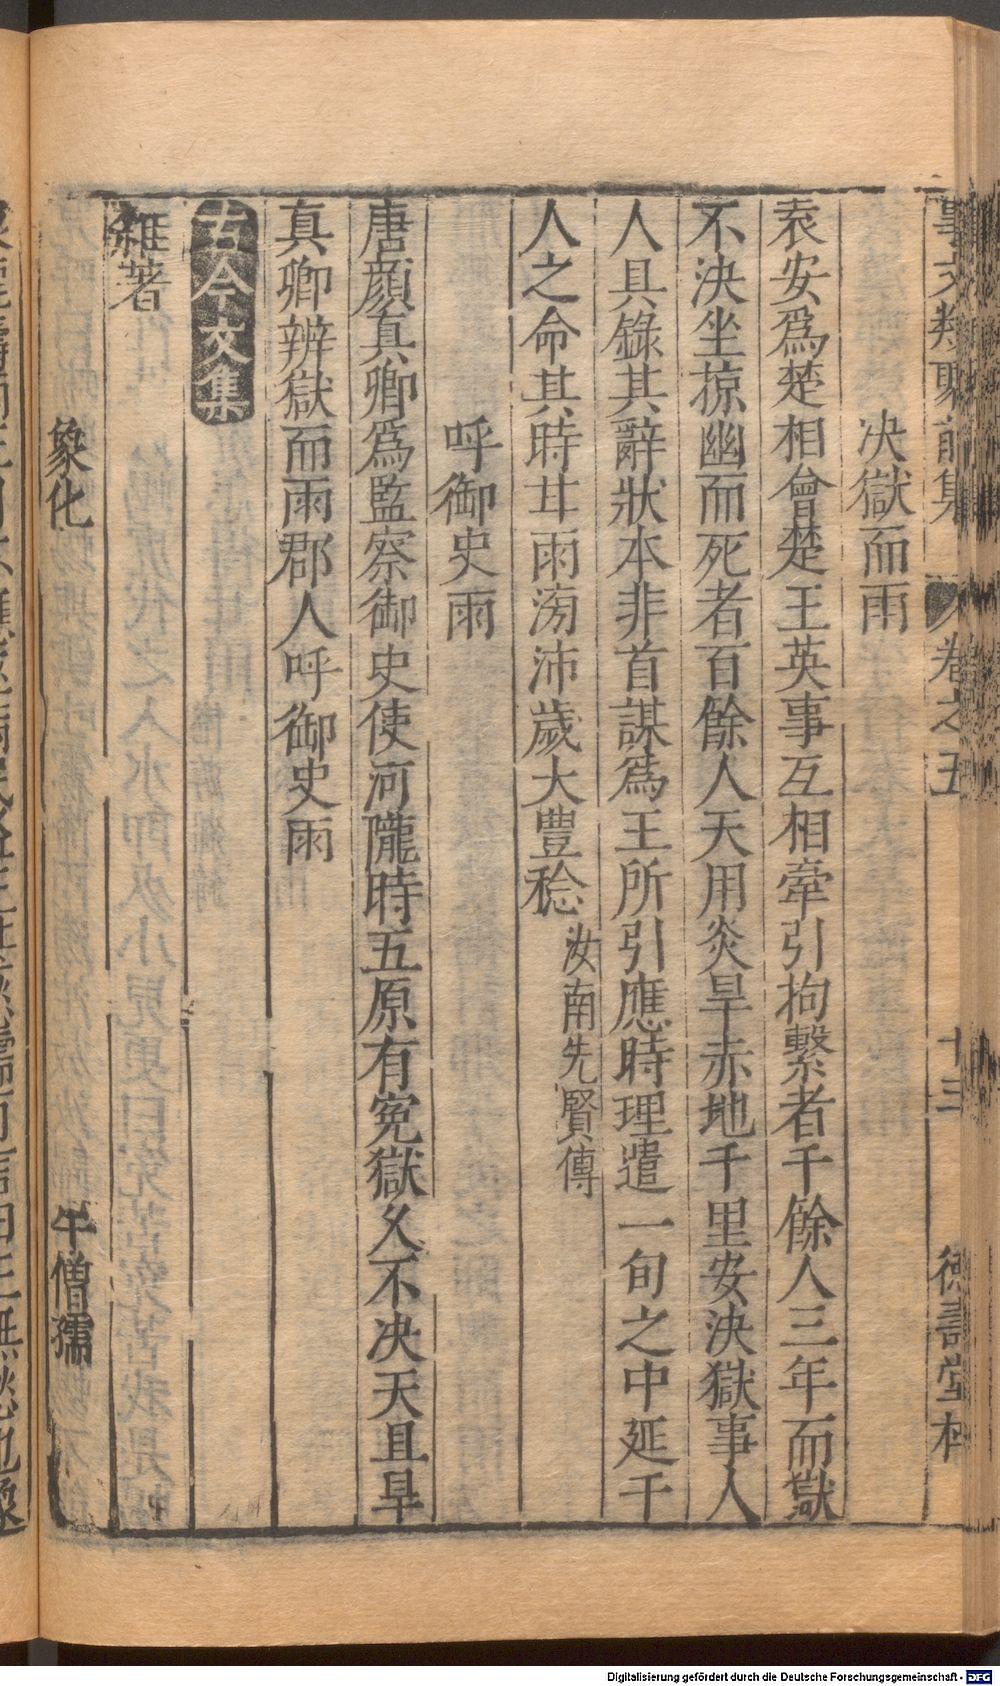 事文類聚前集 卷之五 十三 德壽堂梓
决獄而雨
袁安爲楚相會楚王英事互相牽引拘繫者千餘人三年而獄
不決坐掠幽而死者百餘人天用炎旱赤地千里安決獄事人
人具錄其辭狀本非首謀爲王所引應時理遣一旬之中延千
人之命其時甘雨滂沛歲大豐稔汝南先賢傳
呼御史雨
唐顔真卿爲監察御史使河隴時五原有寃獄久不决天且旱
真卿辨獄而雨郡人呼御史雨
古今文集
雜著
象化 牛僧孺
Digitalisierung gefördert durch die Deutsche Forschungsgemeinschaft - DFG